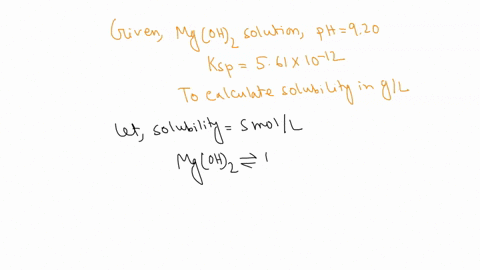 Given, Mg(OH)₂ solution, pH=9.20
Ksp = 5.61×10⁻¹²
To calculate solubility in g/L
let, solubility = s mol/L
Mg(OH)₂ ⇌ 1